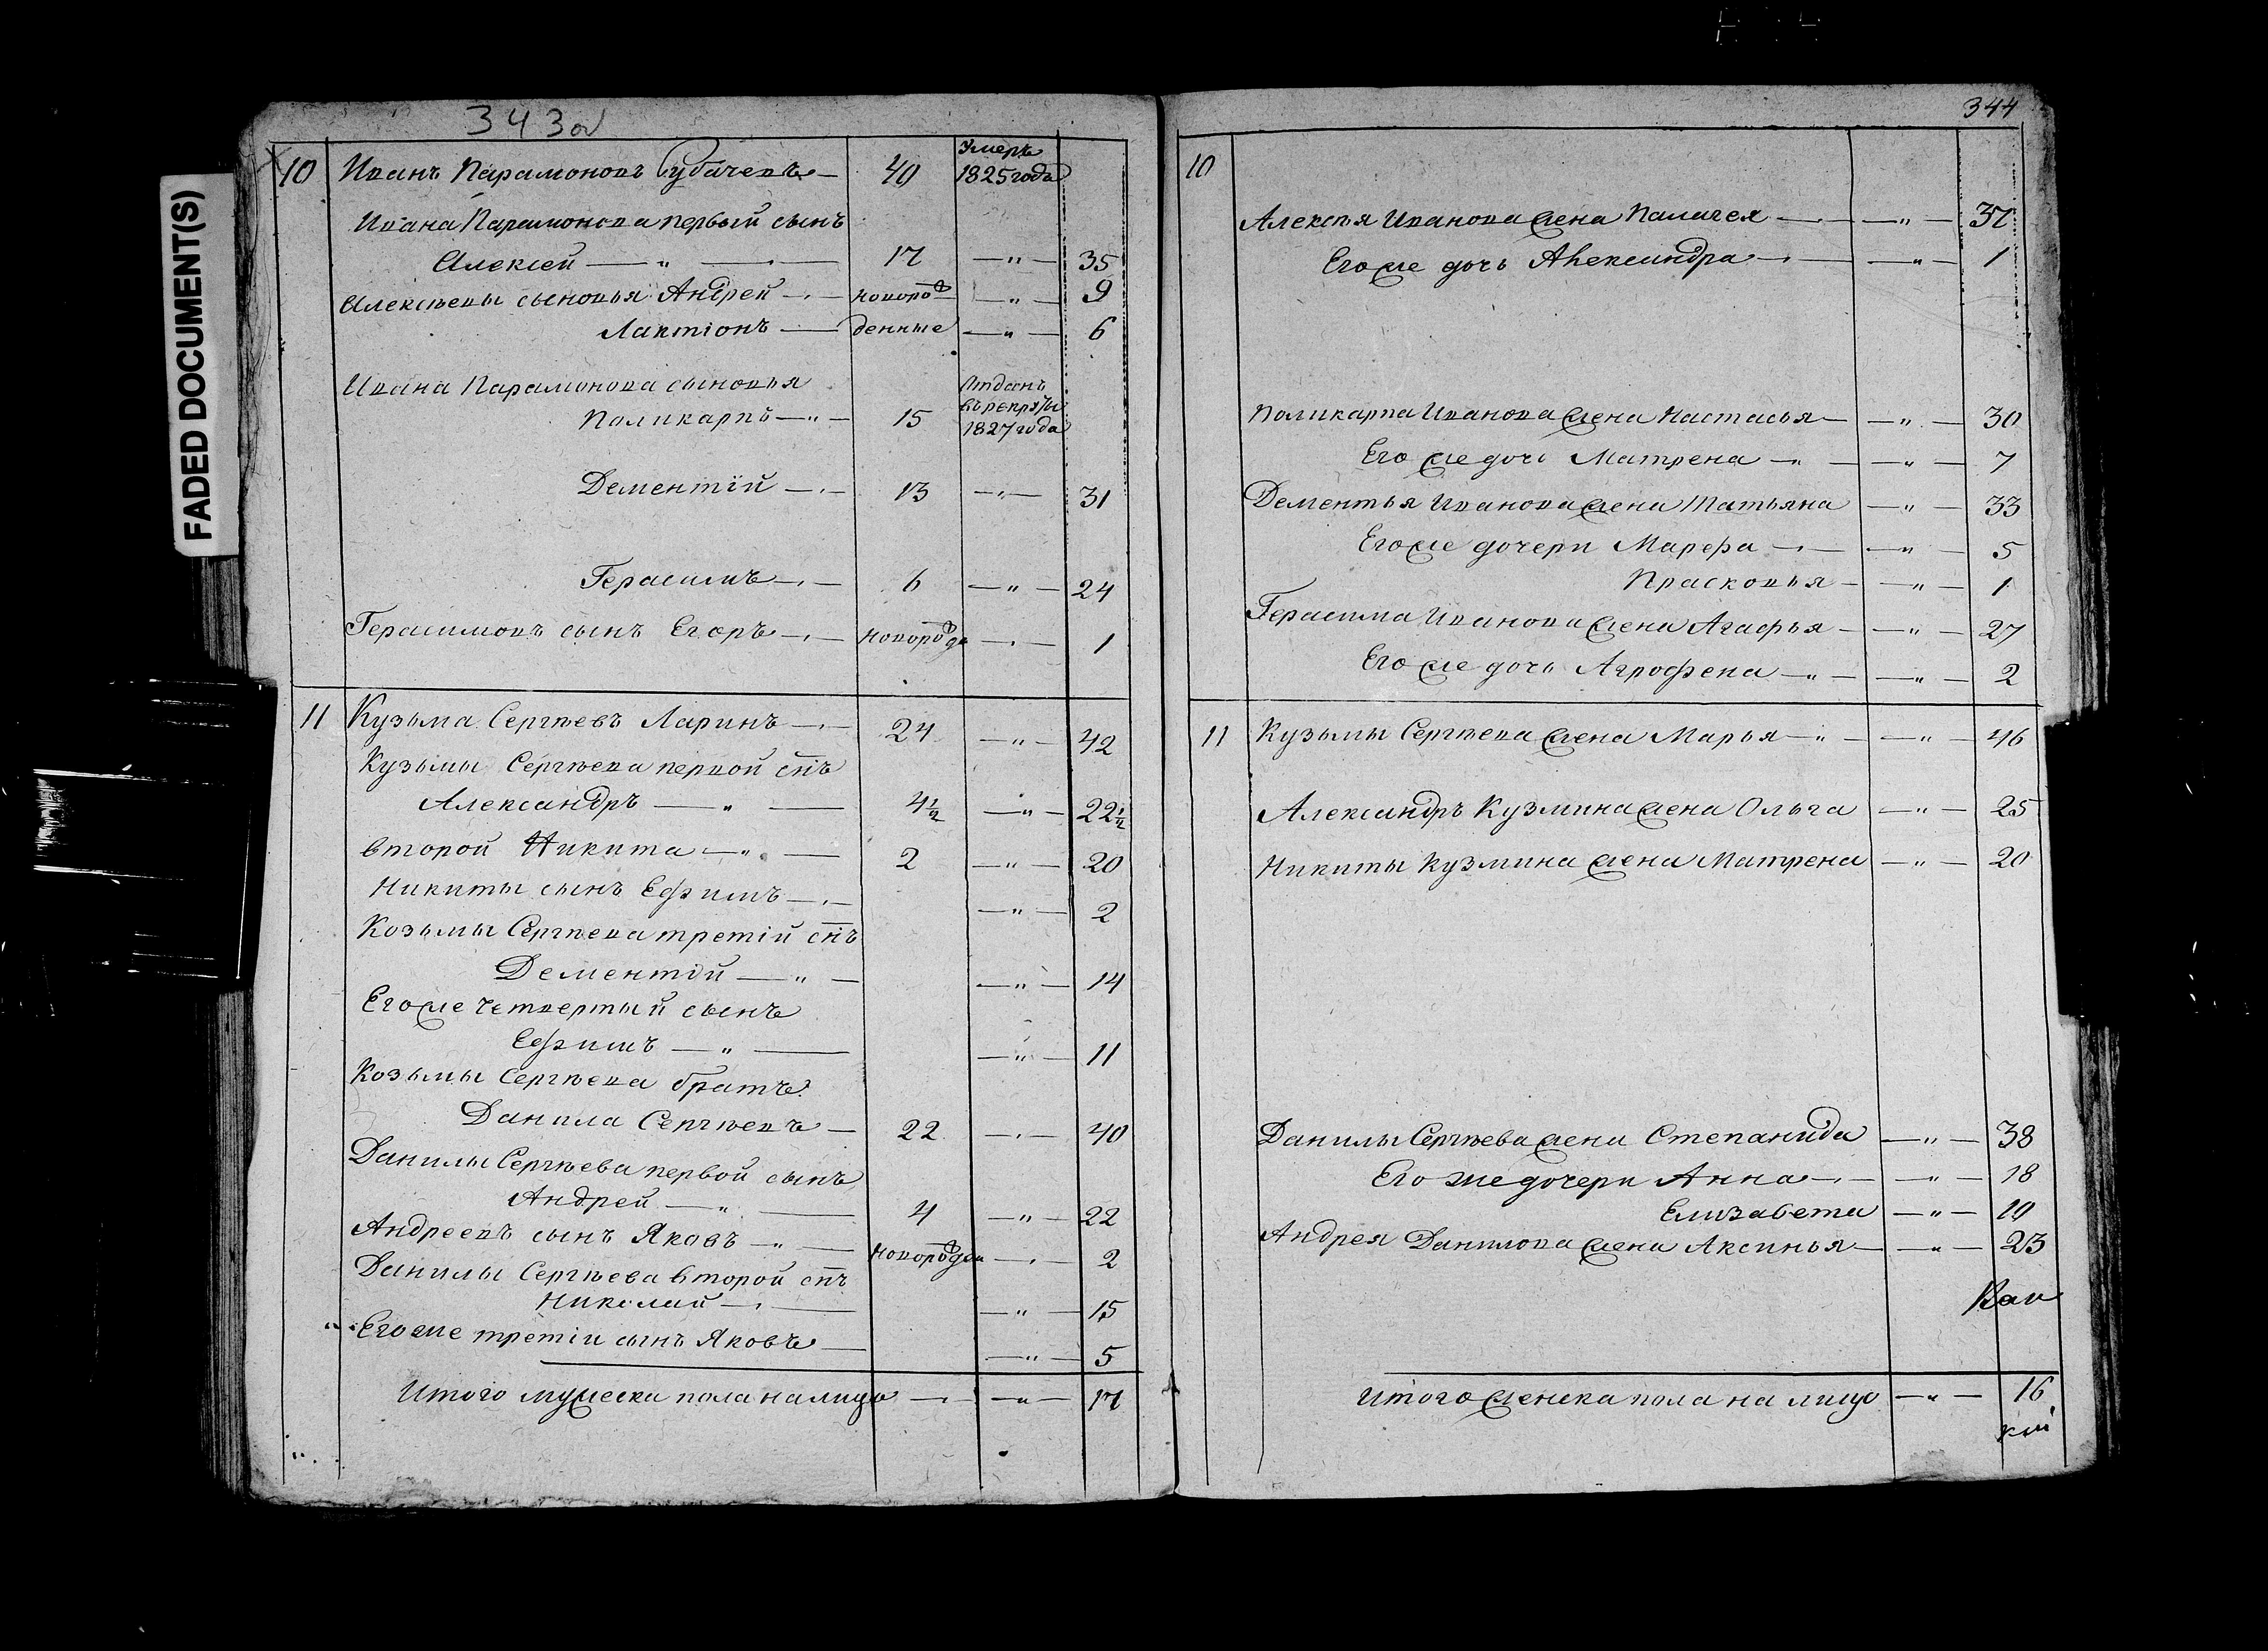 FADED DOCUMENT(S)
343 об
10 Иванъ Парамоновъ Губачевъ — 40 Умеръ 1825 года
Ивана Парамонова первый сынъ
Алексей — " — 17 — " — 35
Алексѣевы сыновья Андрей — новорож — " — 9
Лактіонъ — денные — " — 6
Ивана Парамонова сыновья
Поликарпъ — " — 15 Отданъ въ рекруты 1827 года
Дементій — 13 — " — 31
Герасимъ — 6 — " — 24
Герасимовъ сынъ Егоръ — новорожде — 1
11 Кузьма Сергѣевъ Ларинъ — 24 — " — 42
Кузьмы Сергѣева первой снъ
Александръ — " — 4½ — " — 22½
второй Никита — " — 2 — " — 20
Никиты сынъ Ефимъ — — " — 2
Козьмы Сергѣева третій снъ
Дементій — " — — " — 14
Егоже четвертый сынъ
Ефимъ — " — — " — 11
Козьмы Сергѣева братъ
Данила Сергѣевъ — 22 — 40
Данилы Сергѣева первой сынъ
Андрей — " — 4 — " — 22
Андреевъ сынъ Яковъ — " — новорожден — 2
Данилы Сергѣева второй снъ
Николай — — " — 15
Егоже третіи сынъ Яковъ — — " — 5
Итого мужеска пола налицо — — " — 17
344
10
Алексѣя Иванова жена Палагея — — " — 37
Егоже дочь Александра — — " — 1
Поликарпа Иванова жена Настасья — — " — 30
Его же дочь Матрена — " — — " — 7
Дементья Иванова жена Татьяна — " — 33
Егоже дочери Марфа — — " — 5
Прасковья — — " — 1
Герасима Иванова жена Агафья — — " — 27
Его же дочь Агрофена — " — — " — 2
11 Кузьмы Сергѣева жена Марья — " — — " — 46
Александръ Кузмина жена Ольга — " — 25
Никиты Кузмина жена Матрена — " — 20
Данилы Сергѣева жена Степанида — " — 38
Его же дочери Анна — — " — 18
Елизавета — " — 10
Андрея Данилова жена Аксинья — — " — 23
Итого женска пола на лицо — " — 16